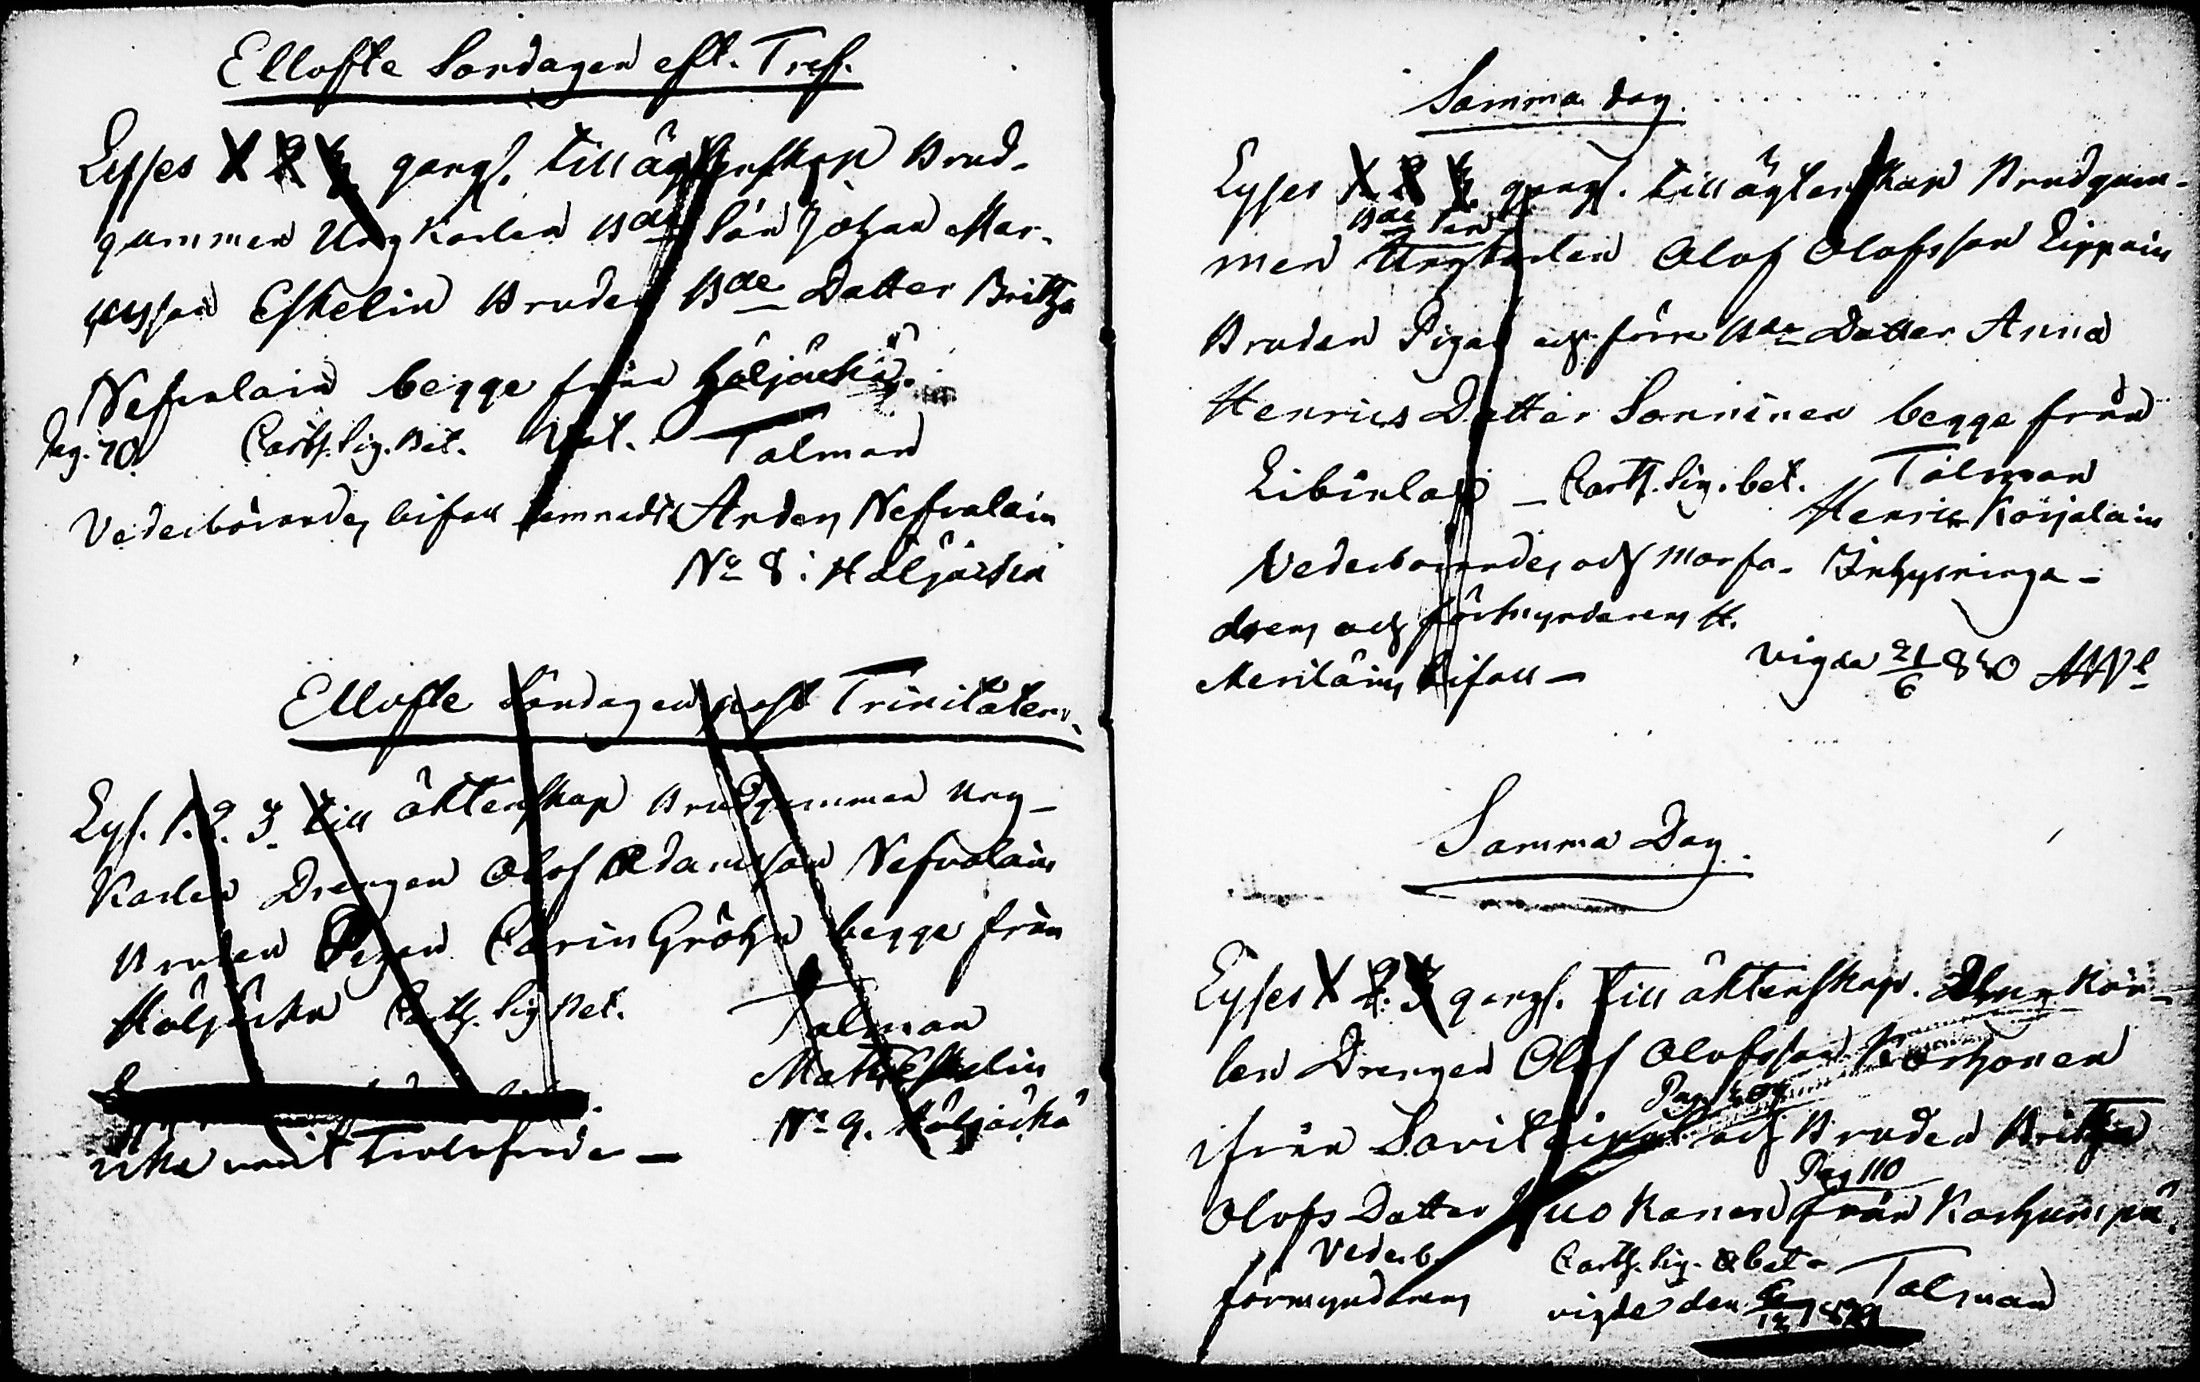 Ellofte Sondagen eft. Tref.
Lysses 1 2 3 gangs. till ägtenskap Brud-
gummen Ungkarlen Bde Son Johan Mar-
cusson Eskelin Bruden Bde Datter Britha
Nefvalain begge från Häljäckä
Pag. 70 Carth. Sig. Bet. Talman
Vederbörandes bifall Anders Nefvalain
No 8: Häljäckä
Ellofte Söndagen post Trinitatem.
Lys. 1. 2. 3. till äktenskap Brudgummen Ung-
Karlen Drengen Olof Adamsson Nefvalain
Bruden Pigan Carin Gröhn begge från
Häljäckä Carth. Sig. Bet.
Talman
Math. Eskelin
No 9. Häljäckä
Trolofvade
Samma dag.
Lyses 1 2 3 gangs. till ägtenskap Brudgum-
Bde Son
men Ungkarlen Olof Olofsson Lippain
Bruden Pigan och förre Bde Datter Anna
Henrics Datter Sonninen begge från
Libinlax Carth. Sig. bet. Talman
Henric Körjalain
Vederbörandes och morfa- Inhysninge-
drens och förmyndarens H.
Meriläins bifall
vigda 21/6 840
Samma Dag.
Lyses 1. 2. 3 gangs. till äktenskap. Ung Kar-
len Drengen Olof Olofsson Korhonen
Pag
ifrån Savilaipal och Bruden Britha
Pag 110
Olofs Datter Kuokanen från Karhunpä.
Vederb.
förmyndarens
Carth. Sig. bet.
vigde den 6/12 1839 Talman